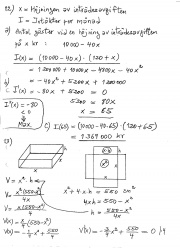 12.) x = Höjningen av inträdesavgiften
I = Intäkter per månad
a) Antal gäster vid en höjning av inträdesavgiften
på x kr: 10000 - 40x
I(x) = (10000 - 40x) · (120 + x)
= 1200000 + 10000x - 4800x - 40x²
= -40x² + 5200x + 1200000
I'(x) = -80x + 5200 = 0
I''(x) = -80 5200 = 80x
< 0 x = 65
↓
Max c) I(65) = (10000 - 40·65)·(120+65)
= 1369000 kr
13)
x² + 4xh = 550 cm²
V = x² · h
4xh = 550 - x²
h = 550 - x² / 4x
V(x) = 550/4 - 3/4 x²